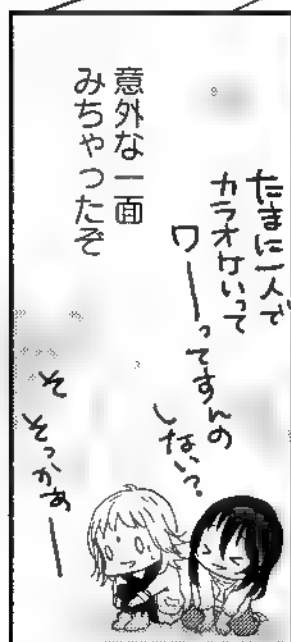 たまに一人で
カラオケいって
ワーーってすんの
しない？
意外な一面
みちゃったぞ
そ
そっかあー